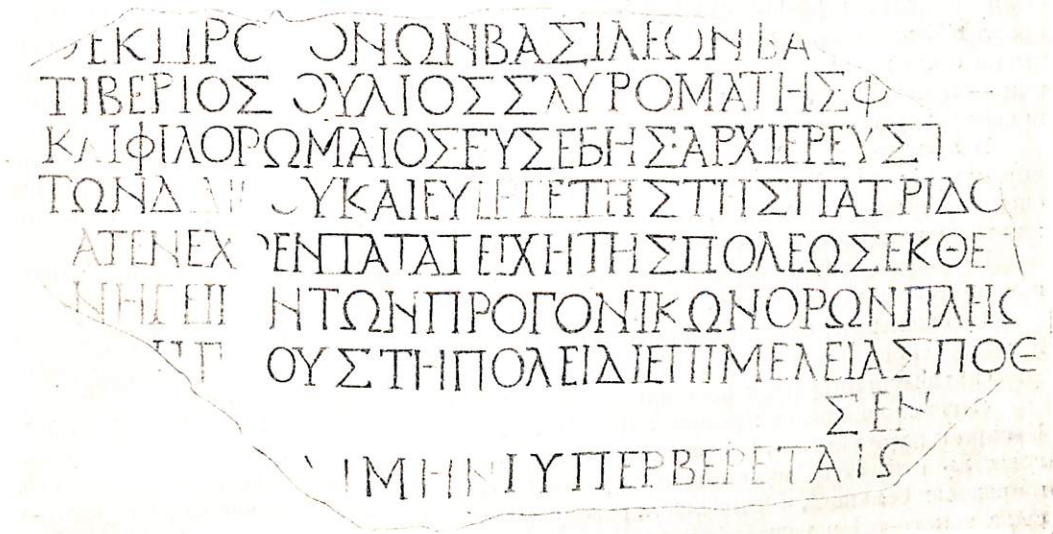 ΕΚ ΠΡΟ ΟΝΩΝ ΒΑΣΙΛΕΩΝ ΒΑ
ΤΙΒΕΡΙΟΣ ΟΥΛΙΟΣ ΣΑΥΡΟΜΑΤΗΣ Φ
ΚΑΙ ΦΙΛΟΡΩΜΑΙΟΣ ΕΥΣΕΒΗΣ ΑΡΧΙΕΡΕΥΣ
ΤΩΝ ΟΥ ΚΑΙ ΕΥΕΡΓΕΤΗΣ ΤΗΣ ΠΑΤΡΙΔΟ
ΑΤΕΝΕΧ ΕΝΤΑ ΤΑ ΤΕΙΧΗ ΤΗΣ ΠΟΛΕΩΣ ΕΚ ΘΕ
ΤΩΝ ΠΡΟΓΟΝΙΚΩΝ ΟΡΩΝ ΠΛΗΣ
ΟΥΣ ΤΗ ΠΟΛΕΙ ΔΙ ΕΠΙΜΕΛΕΙΑΣ ΠΟΘ
ΣΕΝ
ΜΗΝΙ ΥΠΕΡΒΕΡΕΤΑΙΟ